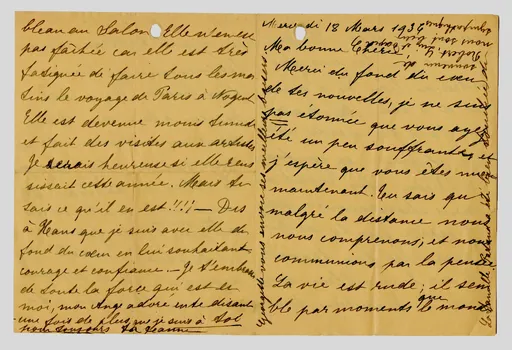 Mercredi 18 Mars 193
Ma bonne Chérie
Merci du fond du cœur
de tes nouvelles, je ne suis
pas étonnée que vous ayez
été un peu souffrantes, et
j'espère que vous êtes mieux
maintenant. Tu sais que
malgré la distance nous
nous comprenons, et nous
communions par la pensée.
La vie est rude, il sem
ble par moments que le monde
souvenir de
Robert
nous sont bien
sympathiques
Georgette vous envoie ses meilleurs baisers.
La famille
bleau au Salon. Elle n'en est
pas fâchée car elle est très
fatiguée de faire tous les ma-
tins le voyage de Paris à Nogent
Elle est devenue moins timide
et fait des visites aux artistes
Je serais heureuse si elle réus
sissait cette année. Mais tu
sais ce qu'il en est !!! — Dis
à Hans que je suis avec elle du
fond du cœur en lui souhaitant
courage et confiance. — Je t'embrasse
de toute la force qui est en
moi, mon Ange adoré en te disant
une fois de plus que je suis à toi
pour toujours ta Jeanne